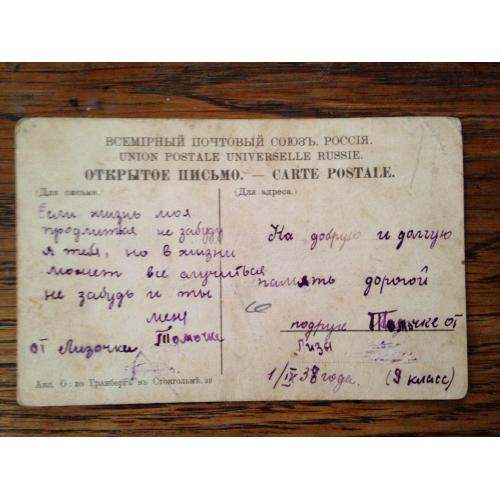 ВСЕМІРНЫЙ ПОЧТОВЫЙ СОЮЗЪ. РОССІЯ.
UNION POSTALE UNIVERSELLE RUSSIE.
ОТКРЫТОЕ ПИСЬМО. — CARTE POSTALE.
(Для письма.)
(Для адреса.)
Если жизнь моя
продлиться не забуду
я тебя, но в жизни
может все случиться
не забудь и ты
меня
от Лизочки Томочке
На добрую и долгую
память дорогой
6
подруге Томочке от
Лизы
1/IX 38 года. (9 класс)
Акц. О: во Гранбергъ въ Стокгольмѣ.